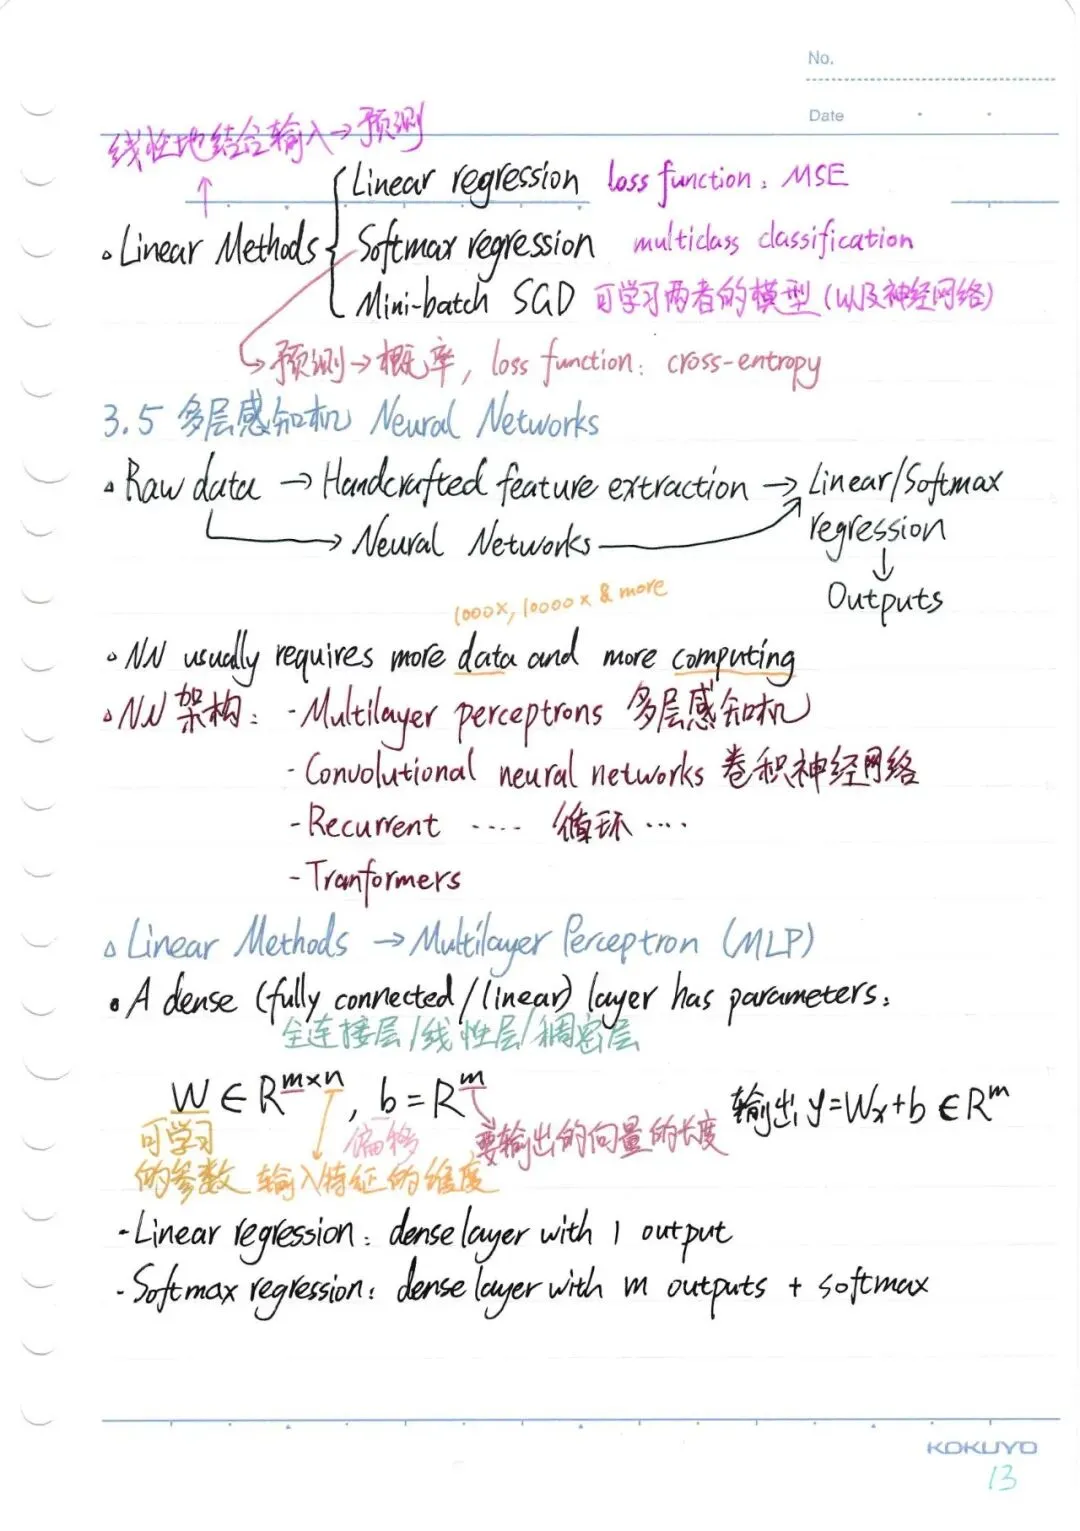 No.
Date
线性地结合输入→预测
Linear regression loss function: MSE
Linear Methods Softmax regression multiclass classification
Mini-batch SGD 可学习两者的模型(以及神经网络)
预测→概率, loss function: cross-entropy
3.5 多层感知机 Neural Networks
Raw data → Handcrafted feature extraction → Linear/Softmax
regression
Neural Networks
Outputs
1000x, 10000x & more
NN usually requires more data and more computing
NN 架构: - Multilayer perceptrons 多层感知机
- Convolutional neural networks 卷积神经网络
- Recurrent .... 循环 ....
- Tranformers
Linear Methods → Multilayer Perceptron (MLP)
A dense (fully connected/linear) layer has parameters:
全连接层/线性层/稠密层
W ∈ R^{m×n}, b = R^m 输出 y=Wx+b ∈ R^m
可学习 偏移 要输出的向量的长度
的参数 输入特征的维度
- Linear regression: dense layer with 1 output
- Softmax regression: dense layer with m outputs + softmax
KOKUYO
13